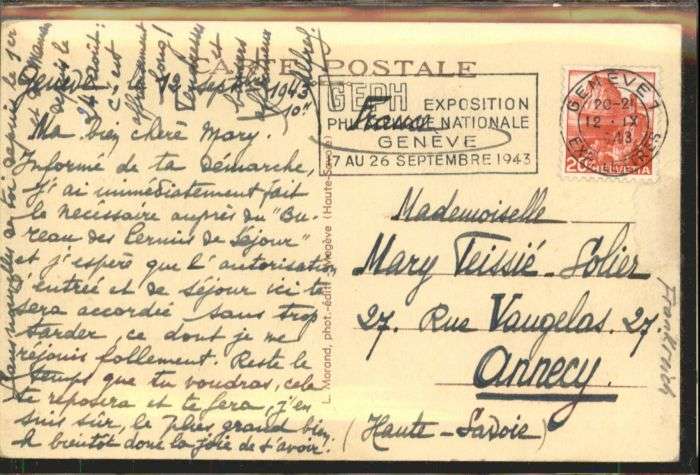 CARTE POSTALE
Genève, le 12 septembre 1943
Ma bien chère Mary.
Informé de ta démarche,
j'ai immédiatement fait
le nécessaire auprès du "Bu-
reau des Permis de Séjour"
et j'espère que l'autorisation
d'entrée et de séjour ici te
sera accordée sans trop
tarder, ce dont je me
réjouis follement. Reste le
temps que tu voudras, cela
te reposera et te fera, j'en
suis sûr, le plus grand bien
A bientôt donc la joie de t'avoir!
Sans nouvelles de toi depuis le 1er
GEPH EXPOSITION
PHILATELIQUE NATIONALE
GENÈVE
17 AU 26 SEPTEMBRE 1943
France
GENÈVE 1
20-21
12·IX
43
20 HELVETIA
L. Morand, phot.-édit. Megève (Haute-Savoie)
Mademoiselle
Mary Teissié-Solier
27. Rue Vaugelas. 27.
Annecy.
(Haute-Savoie)
Frankreich